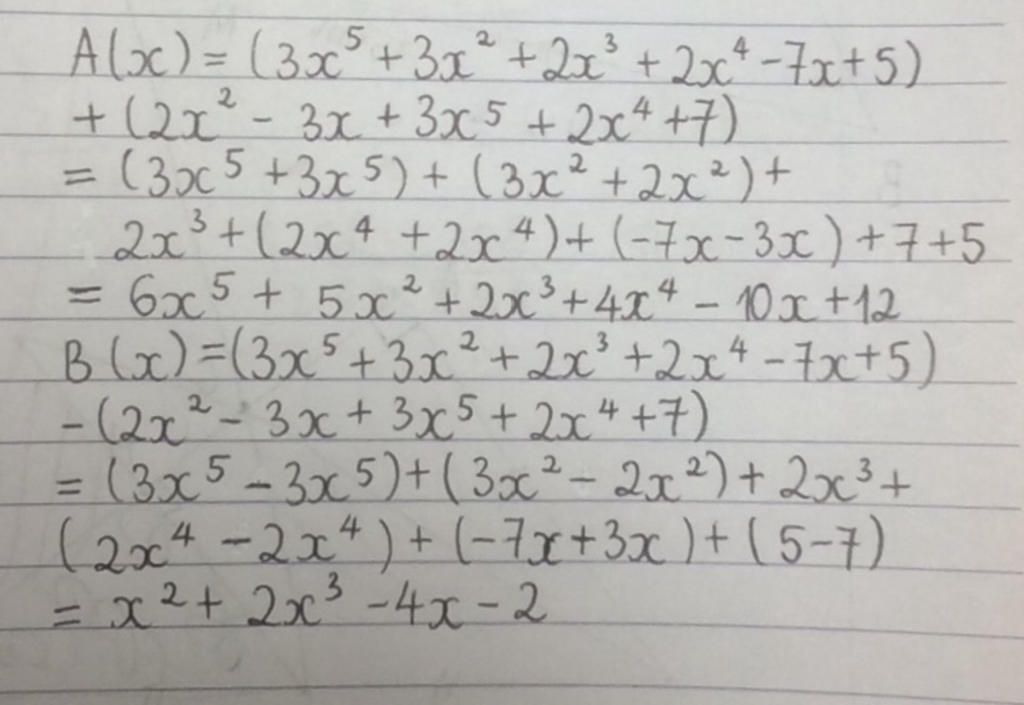 A(x) = (3x⁵ + 3x² + 2x³ + 2x⁴ - 7x + 5)
+ (2x² - 3x + 3x⁵ + 2x⁴ + 7)
= (3x⁵ + 3x⁵) + (3x² + 2x²) +
2x³ + (2x⁴ + 2x⁴) + (-7x - 3x) + 7 + 5
= 6x⁵ + 5x² + 2x³ + 4x⁴ - 10x + 12
B(x) = (3x⁵ + 3x² + 2x³ + 2x⁴ - 7x + 5)
- (2x² - 3x + 3x⁵ + 2x⁴ + 7)
= (3x⁵ - 3x⁵) + (3x² - 2x²) + 2x³ +
(2x⁴ - 2x⁴) + (-7x + 3x) + (5 - 7)
= x² + 2x³ - 4x - 2